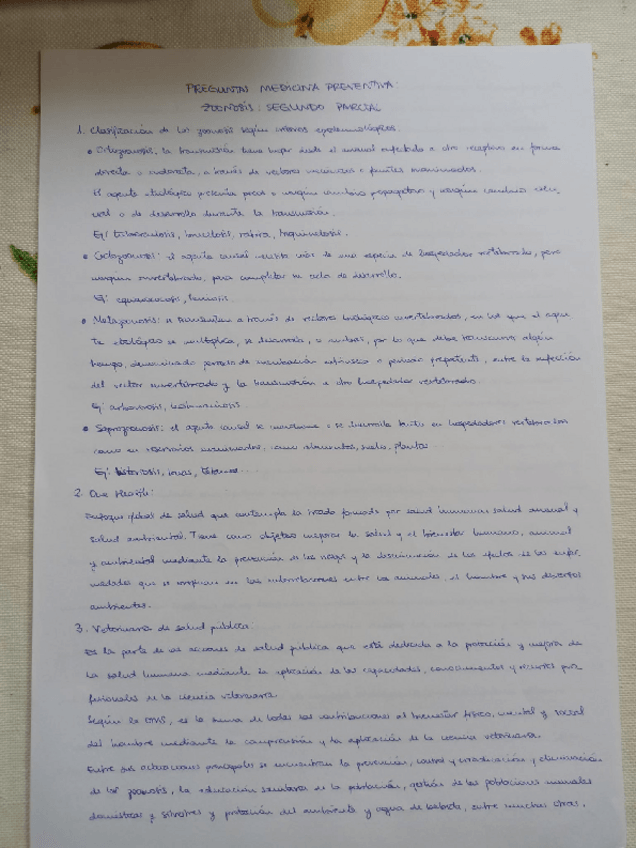 PREGUNTAS MEDICINA PREVENTIVA:
ZOONOSIS: SEGUNDO PARCIAL
1. Clasificación de las zoonosis según criterios epidemiológicos:
• Ortozoonosis: la transmisión tiene lugar desde el animal infectado a otro receptivo en forma
directa o indirecta, a través de vectores mecánicos o fuentes inanimadas.
El agente etiológico presenta pocos o ningún cambio propagativo y ningún cambio esen-
cial o de desarrollo durante la transmisión.
Ej/ tuberculosis, brucelosis, rabia, triquinelosis.
• Ciclozoonosis: el agente causal necesita más de una especie de hospedador vertebrado, pero
ningún invertebrado, para completar su ciclo de desarrollo.
Ej: equinococosis, teniosis
• Metazoonosis: se transmiten a través de vectores biológicos invertebrados, en los que el agen-
te etiológico se multiplica, se desarrolla, o ambas, por lo que debe transcurrir algún
tiempo, denominado período de incubación extrínseco o período prepatente, entre la infección
del vector invertebrado y la transmisión a otro hospedador vertebrado.
Ej: arbovirosis, leishmaniosis
• Saprozoonosis: el agente causal se mantiene o se transmite tanto en hospedadores vertebrados
como en reservorios inanimados, como alimentos, suelo, plantas
Ej: listeriosis, tétanos...
2. One Health:
Enfoque global de salud que contempla la tríada formada por salud humana, salud animal y
salud ambiental. Tiene como objetivo mejorar la salud y el bienestar humano, animal
y ambiental mediante la prevención de los riesgos y la disminución de los efectos de las enfer-
medades que se originan en las interrelaciones entre los animales, el hombre y sus diversos
ambientes.
3. Veterinaria de salud pública:
Es la parte de las acciones de salud pública que está dedicada a la protección y mejora de
la salud humana mediante la aplicación de las capacidades, conocimientos y recursos pro-
fesionales de la ciencia veterinaria
Según la OMS, es la suma de todas las contribuciones al bienestar físico, mental y social
del hombre mediante la comprensión y la aplicación de la ciencia veterinaria.
Entre sus actuaciones principales se encuentran la prevención, control y erradicación y eliminación
de las zoonosis, la educación sanitaria de la población, gestión de las poblaciones animales
domésticas y silvestres y protección del ambiente y agua de bebida, entre muchas otras.